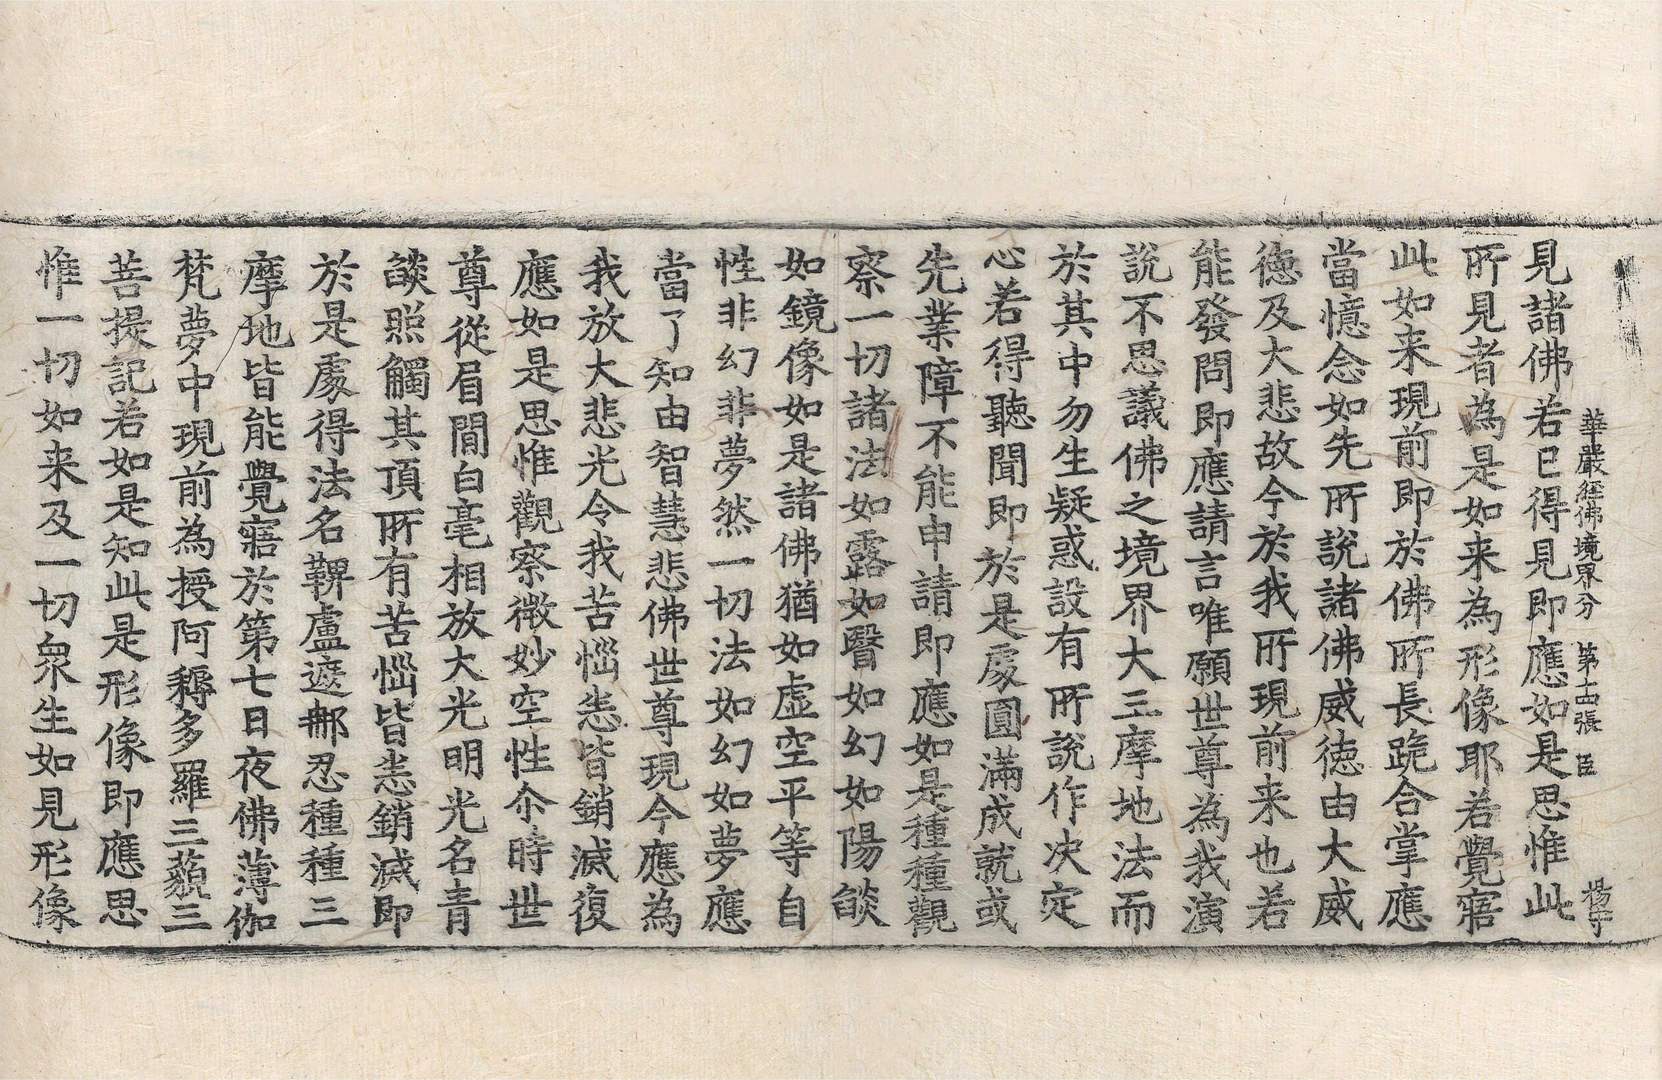 華嚴經佛境界分 第十四張 臣 楊守
見諸佛若已得見即應如是思惟此
所見者為是如来為形像耶若覺寤
此如来現前即於佛所長跪合掌應
當憶念如先所說諸佛威德由大威
德及大悲故今於我所現前来也若
能發問即應請言唯願世尊為我演
說不思議佛之境界大三摩地法而
於其中勿生疑惑設有所說作决定
心若得聽聞即於是處圓滿成就或
先業障不能申請即應如是種種觀
察一切諸法如露如瞖如幻如陽燄
如鏡像如是諸佛猶如虚空平等自
性非幻非夢然一切法如幻如夢應
當了知由智慧悲佛世尊現今應為
我放大悲光令我苦惱恙皆銷滅復
應如是思惟觀察微妙空性尒時世
尊從眉間白毫相放大光明光名青
燄照觸其頂所有苦惱皆恙銷滅即
於是處得法名鞞盧遮郍忍種種三
摩地皆能覺寤於第七日夜佛薄伽
梵夢中現前為授阿耨多羅三藐三
菩提記若如是知此是形像即應思
惟一切如来及一切衆生如見形像